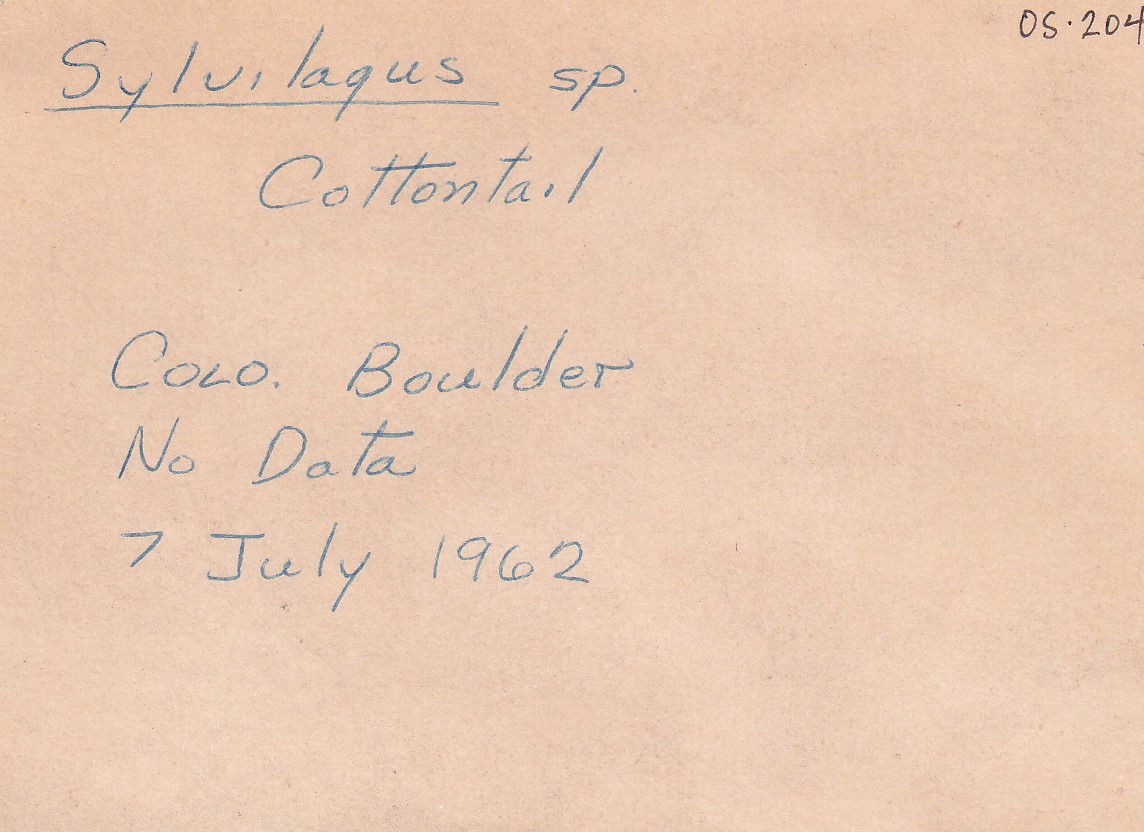 OS.204
Sylvilagus sp.
Cottontail
COLO. Boulder
No Data
7 July 1962